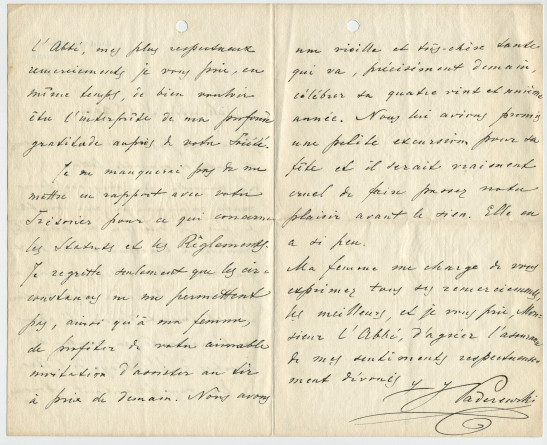 l'Abbé, mes plus respectueux
remerciements je vous prie, en
même temps, de bien vouloir
être l'interprète de ma profonde
gratitude auprès de votre Société.
Je ne manquerai pas de me
mettre en rapport avec votre
Trésorier pour ce qui concerne
les Statuts et les Règlements.
Je regrette seulement que les cir-
constances ne me permettent
pas, ainsi qu'à ma femme,
de profiter de votre aimable
invitation d'assister au tir
à prix de demain. Nous avons
une vieille et très-chère tante
qui va, précisément demain,
célébrer sa quatre vint et onzième
année. Nous lui avions promis
une petite excursion pour sa
fête et il serait vraiment
cruel de faire passer notre
plaisir avant le sien. Elle en
a si peu.
Ma femme me charge de vous
exprimer tous ses remerciements,
les meilleurs, et je vous prie, Mon-
sieur l'Abbé, d'agréer l'assurance
de mes sentiments respectueuse-
ment dévoués
I J Paderewski